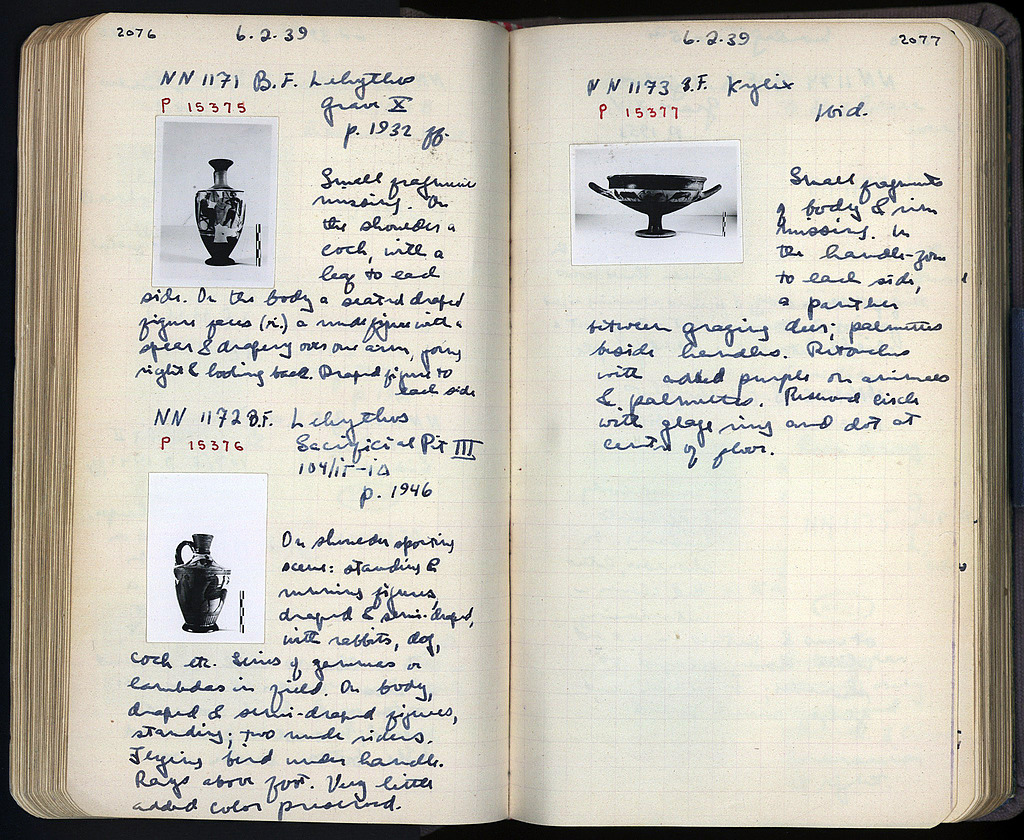 2076
6.2.39
NN 1171 B.F. Lekythos
P 15375
Grave X
p. 1932 ff.
Small fragments
missing. On
the shoulder a
cock, with a
leg to each
side. On the body a seated draped
figure faces (r.) a nude figure with a
spear & drapery over one arm, going
right & looking back. Draped figure to
each side
NN 1172 B.F. Lekythos
P 15376
Sacrificial Pit III
p. 1946
On shoulder sporting
scene: standing &
running figures,
draped & semi-draped,
with rabbits, dog,
cock etc. Series of gammas or
lambdas in field. On body,
draped & semi-draped figures,
standing; two nude riders.
Flying bird under handle.
Rays above foot. Very little
added color preserved.
6.2.39
2077
NN 1173 B.F. Kylix
P 15377
Ibid.
Small fragments
of body & rim
missing. In
the handle-zone
to each side,
a panther
between grazing deer; palmettes
beside handles. Retouches
with added purple on animals
& palmettes. Reserved circle
with glaze ring and dot at
center of floor.